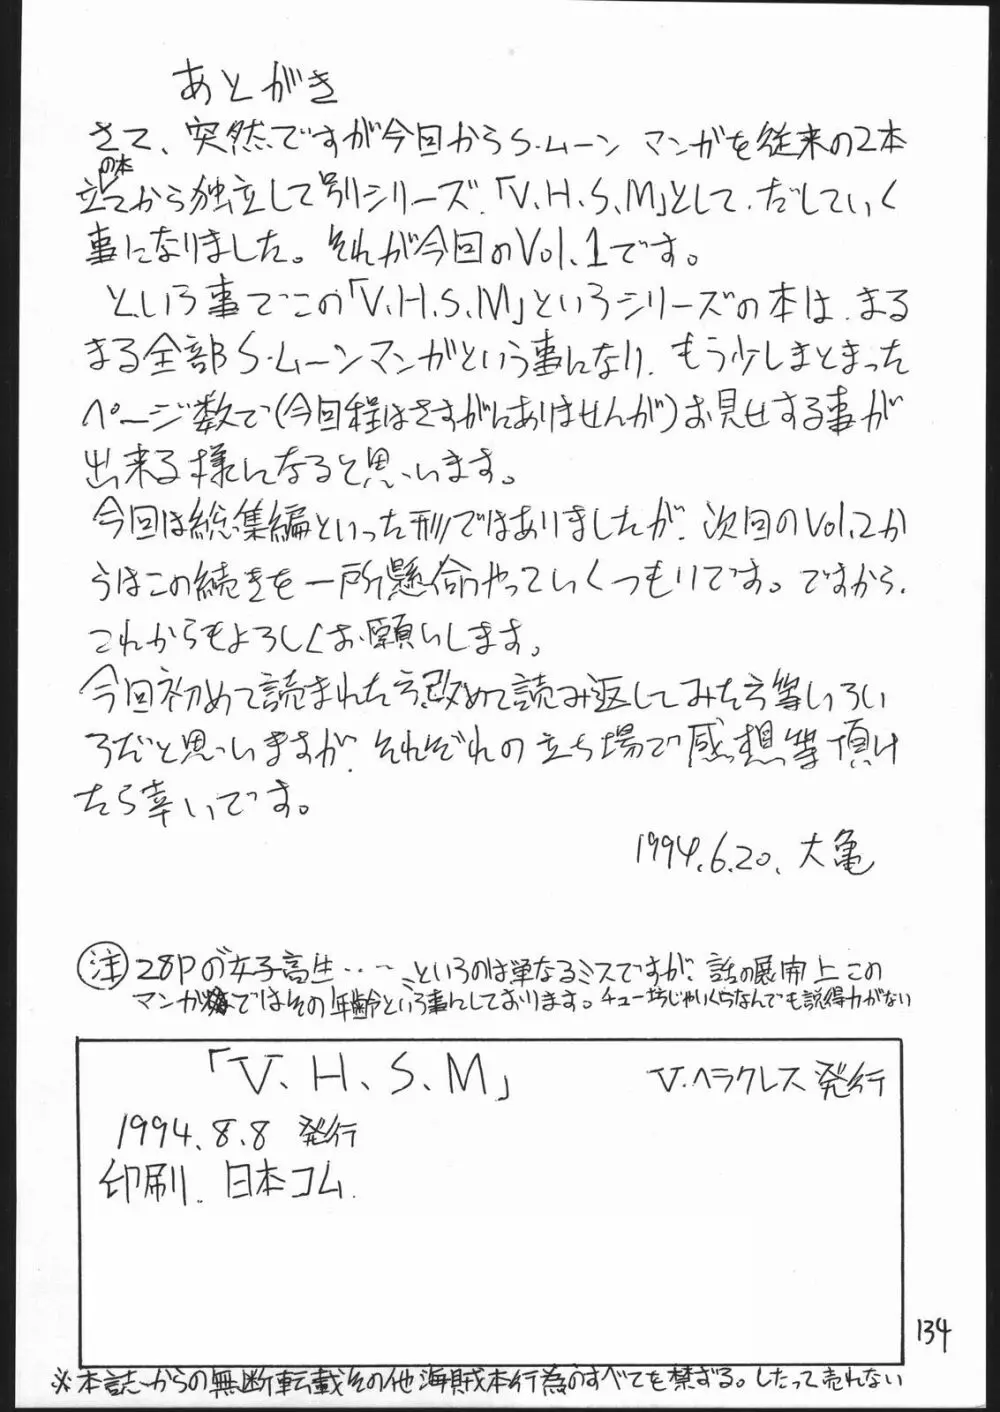 あとがき
さて、突然ですが今回からS.ムーン マンガを従来の2本
の本
立てから独立して別シリーズ、「V.H.S.M」として、だしていく
事になりました。それが今回のVol.1です。
という事でこの「V.H.S.M」というシリーズの本は、まる
まる全部S.ムーンマンガという事になり、もう少しまとまった
ページ数で(今回程はさすがにありませんが)お見せする事が
出来る様になると思います。
今回は総集編といった形ではありましたが、次回のVol.2か
らはこの続きを一所懸命やっていくつもりです。ですから、
これからもよろしくお願いします。
今回初めて読まれた方、改めて読み返してみた方等いろい
ろだと思いますが、それぞれの立ち場で感想等頂け
たら幸いです。
1994.6.20. 大亀
注 28Pの"女子高生‥‥ミというのは単なるミスですが、話の展開上この
マンガではその年齢という事にしております。チュー坊じゃいくらなんでも説得力がない
「V.H.S.M」 V.ヘラクレス発行
1994.8.8 発行
印刷. 日本コム.
134
※本誌からの無断転載その他海賊本行為のすべてを禁ずる。したって売れない